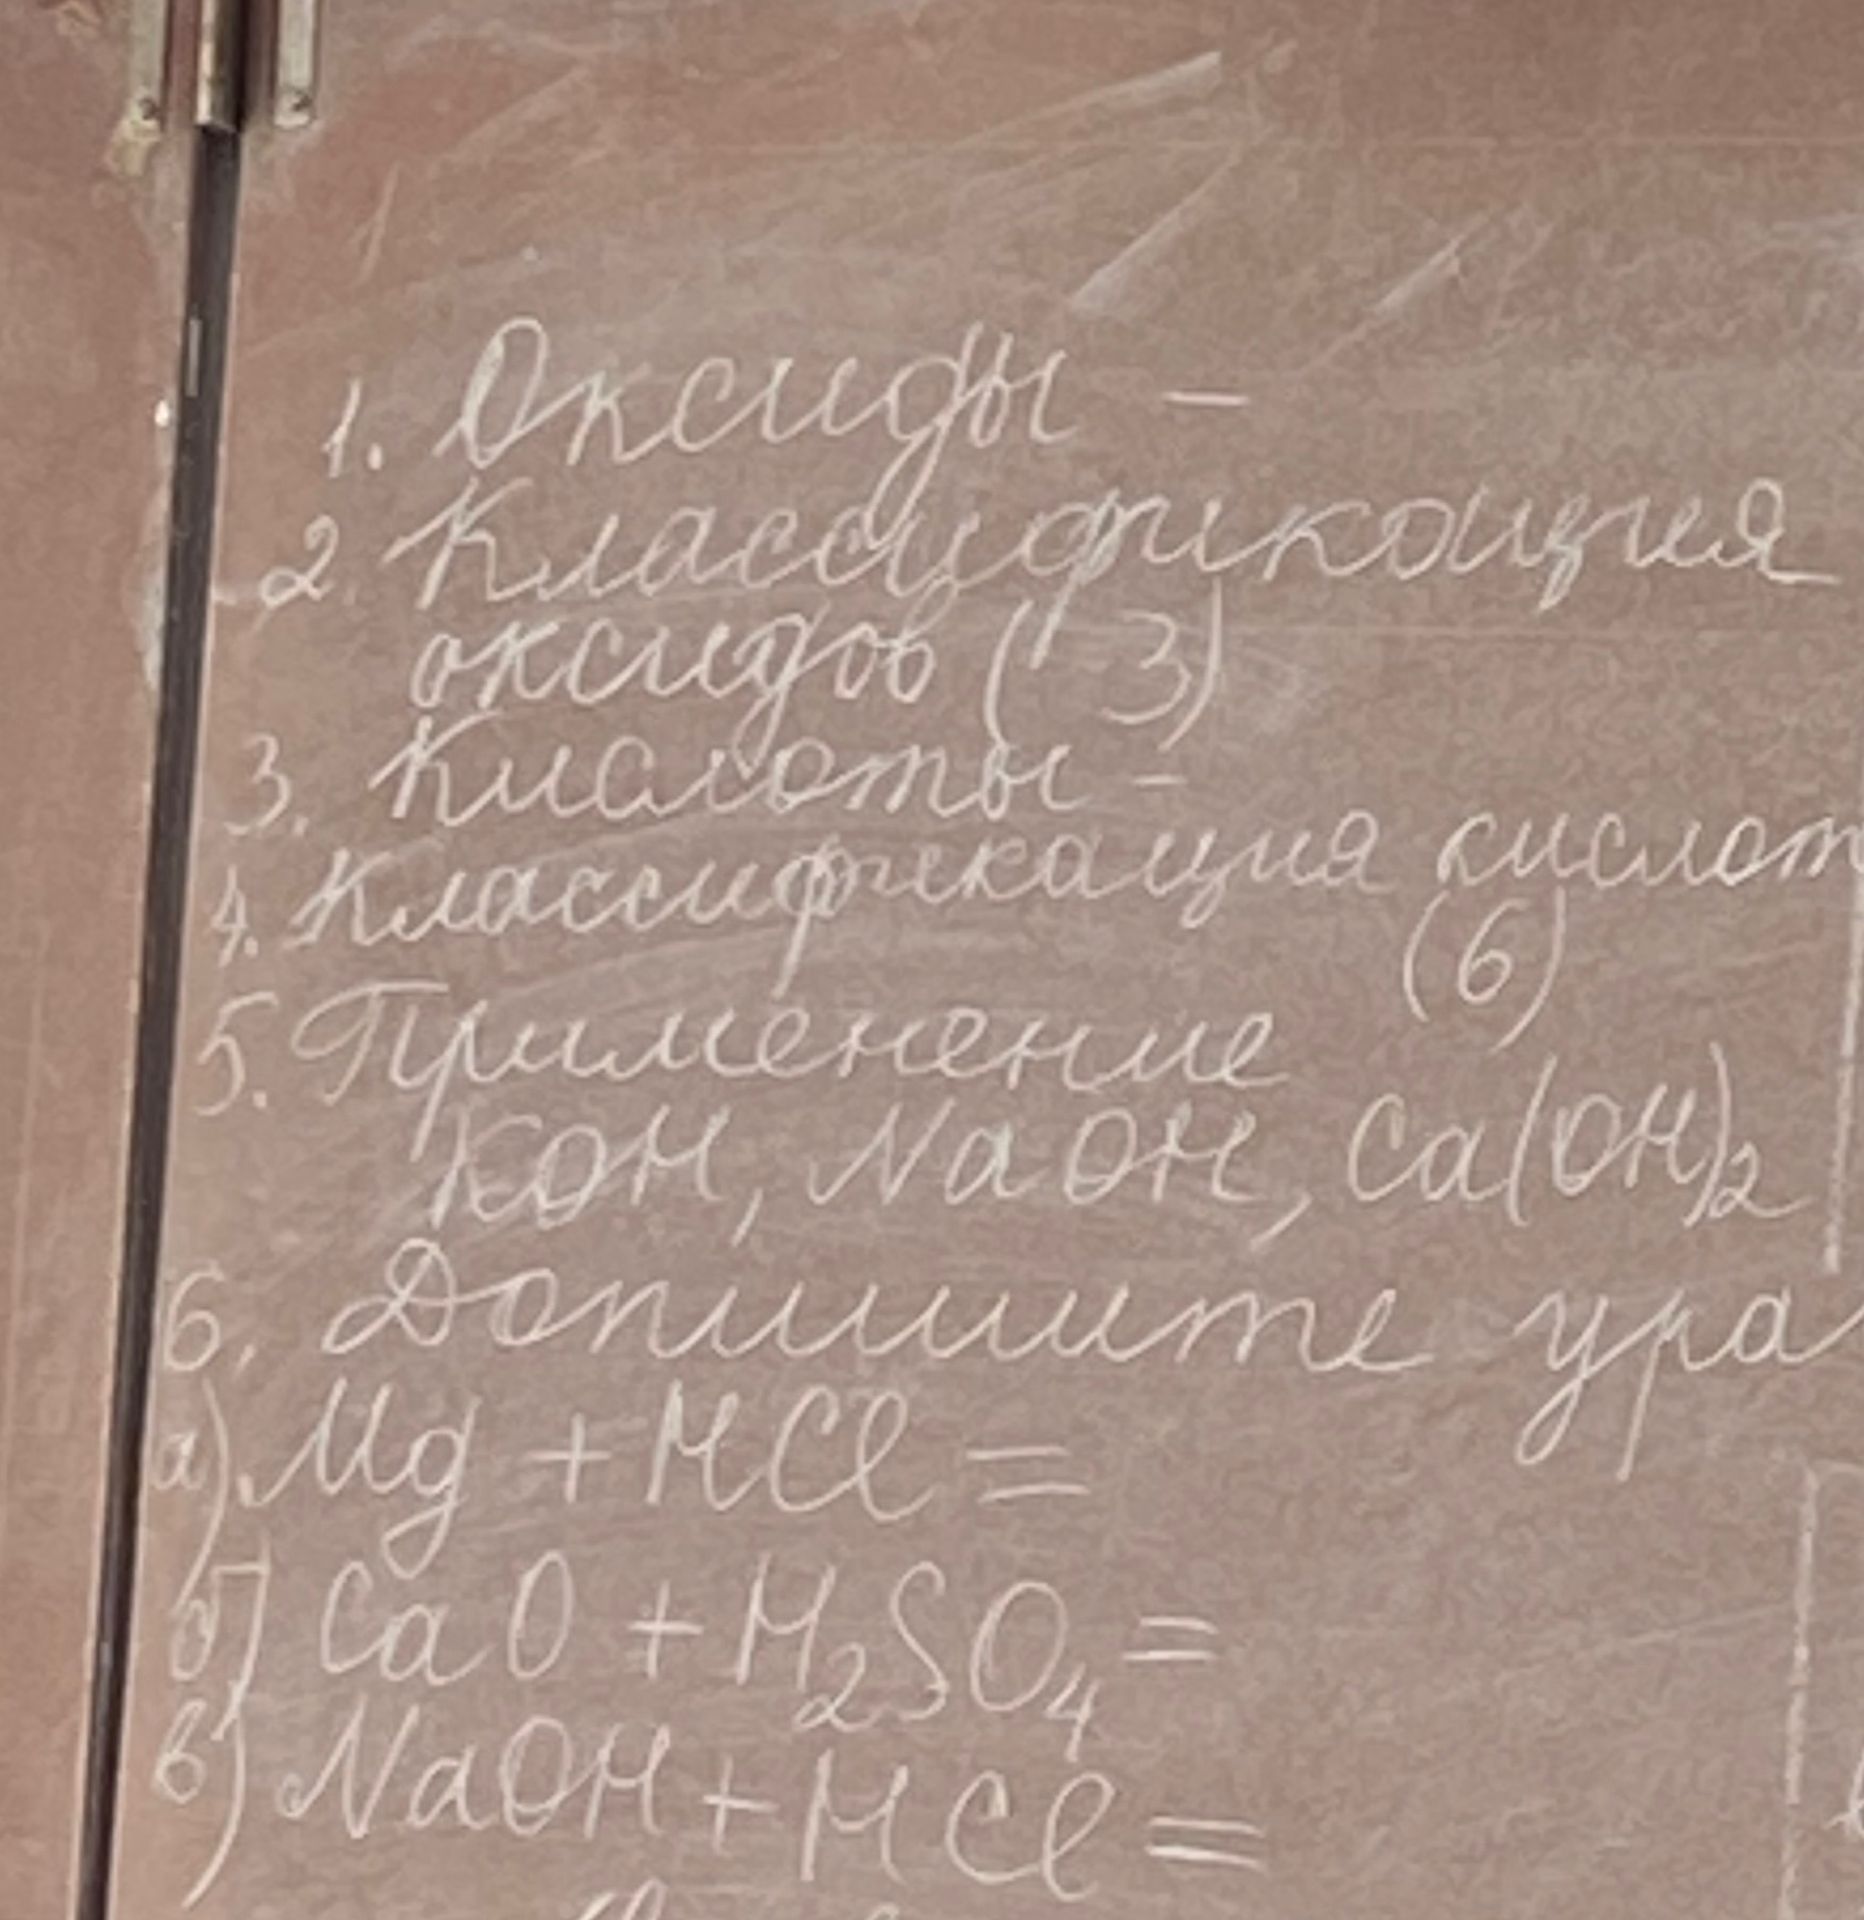 1. Оксиды –
2. Классификация
оксидов ( 3)
3. Кислоты –
4. Классификация кислот
(6)
5. Применение
KOH, NaOH, Ca(OH)₂
6. Допишите ура
а) Mg + HCl =
б) CaO + H₂SO₄ =
в) NaOH + HCl =